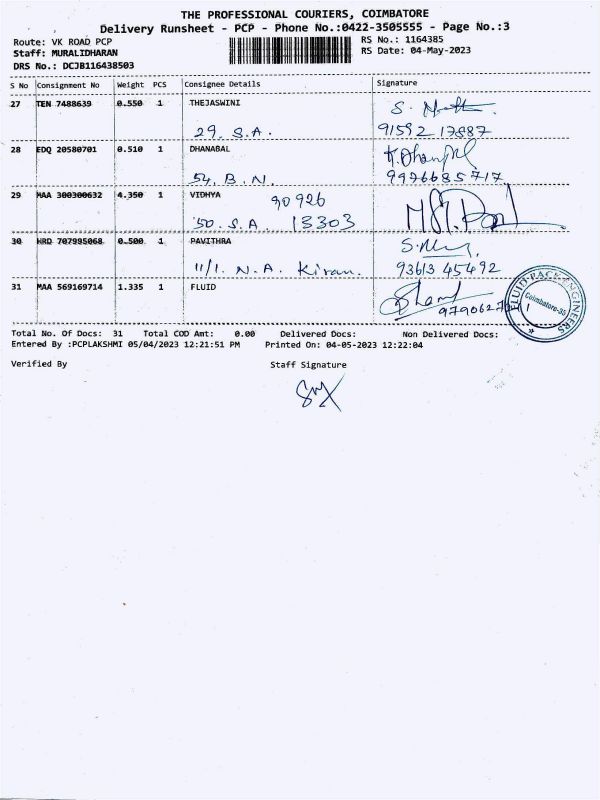 THE PROFESSIONAL COURIERS, COIMBATORE
Delivery Runsheet - PCP - Phone No.:0422-3505555 - Page No.:3
Route: VK ROAD PCP RS No.: 1164385
Staff: MURALIDHARAN RS Date: 04-May-2023
DRS No.: DCJB116438503
S No Consignment No Weight PCS Consignee Details Signature
27 TEN 7488639 0.550 1 THEJASWINI
29. S.A. 91592 17887
28 EDQ 20580701 0.510 1 DHANABAL
54, B.N. 9976685717
29 MAA 300300632 4.350 1 VIDHYA 90926
50. S.A. 13303
30 HRD 707995068 0.500 1 PAVITHRA
11/1. N.A. Kiran. 93613 45492
31 MAA 569169714 1.335 1 FLUID
FLUID PACK ENGINEERS
Coimbatore-35
Total No. Of Docs: 31 Total COD Amt: 0.00 Delivered Docs: Non Delivered Docs:
Entered By :PCPLAKSHMI 05/04/2023 12:21:51 PM Printed On: 04-05-2023 12:22:04
Verified By Staff Signature